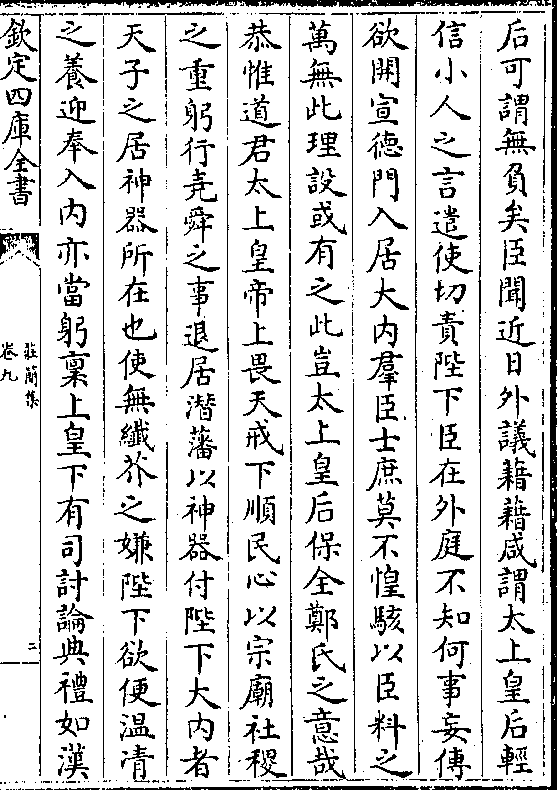 后可謂無負矣臣聞近日外議藉藉咸謂太上皇后輕
信小人之言遣使切責陛下臣在外庭不知何事妄傳
欲開宣德門入居大内羣臣士庶莫不惶駭以臣料之
萬無此理設或有之此豈太上皇后保全鄭氏之意哉
恭惟道君太上皇帝上畏天戒下順民心以宗廟社稷
之重躬行堯舜之事退居潜藩以神器付陛下大内者
天子之居神器所在也使無纖芥之嫌陛下欲便温凊
之養迎奉入内亦當躬稟上皇下有司討論典禮如漢
欽定四庫全書
莊簡集
卷九
二